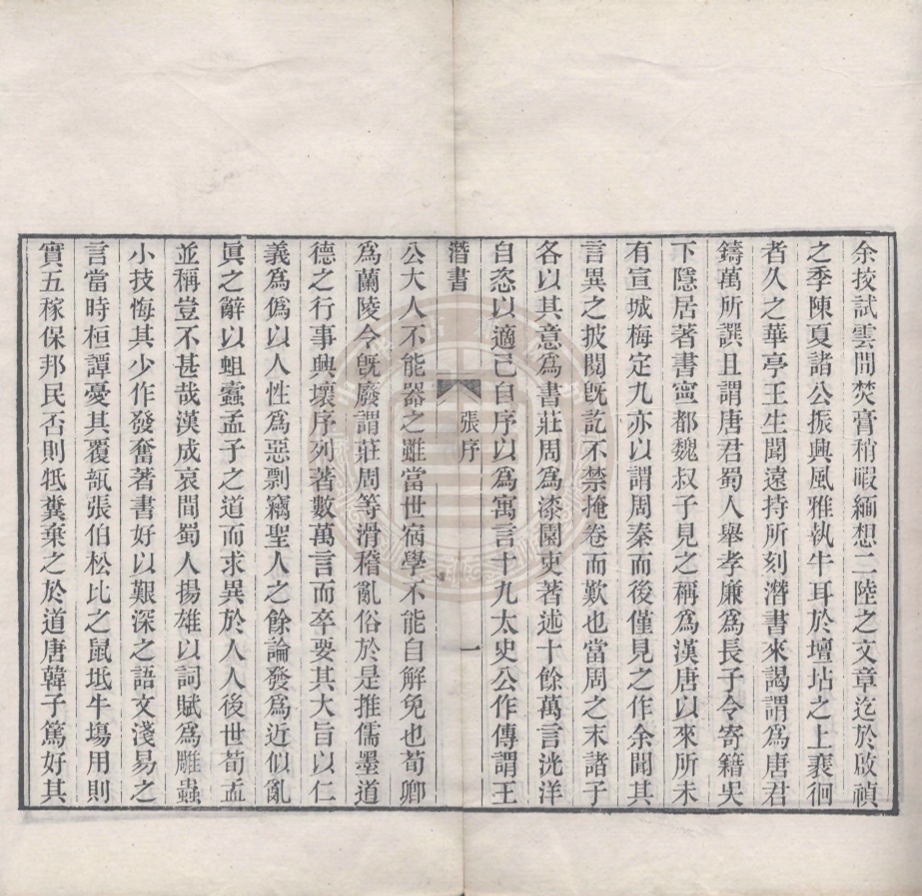 余挍試雲間焚膏稍暇緬想二陸之文章迄於啟禎
之季陳夏諸公振興風雅執牛耳於壇坫之上裵徊
者久之華亭王生聞遠持所刻潛書來謁謂為唐君
鑄萬所譔且謂唐君蜀人舉孝廉為長子令寄籍吳
下隱居著書寍都魏叔子見之稱為漢唐以來所未
有宣城梅定九亦以謂周秦而後僅見之作余聞其
言異之披閱旣訖不禁掩卷而歎也當周之末諸子
各以其意為書莊周為漆園吏著述十餘萬言洸洋
自恣以適己自序以為寓言十九太史公作傳謂王
潛書
張序
一
公大人不能器之雖當世宿學不能自解免也荀卿
為蘭陵令旣廢謂莊周等滑稽亂俗於是推儒墨道
德之行事興壞序列著數萬言而卒要其大旨以仁
義為偽以人性為惡剽竊聖人之餘論發為近似亂
眞之辭以蛆蠹孟子之道而求異於人人後世荀孟
並稱豈不甚哉漢成哀間蜀人揚雄以詞賦為雕蟲
小技悔其少作發奮著書好以艱深之語文淺易之
言當時桓譚憂其覆瓿張伯松比之鼠坻牛塲用則
實五稼保邦民否則牴糞棄之於道唐韓子篤好其